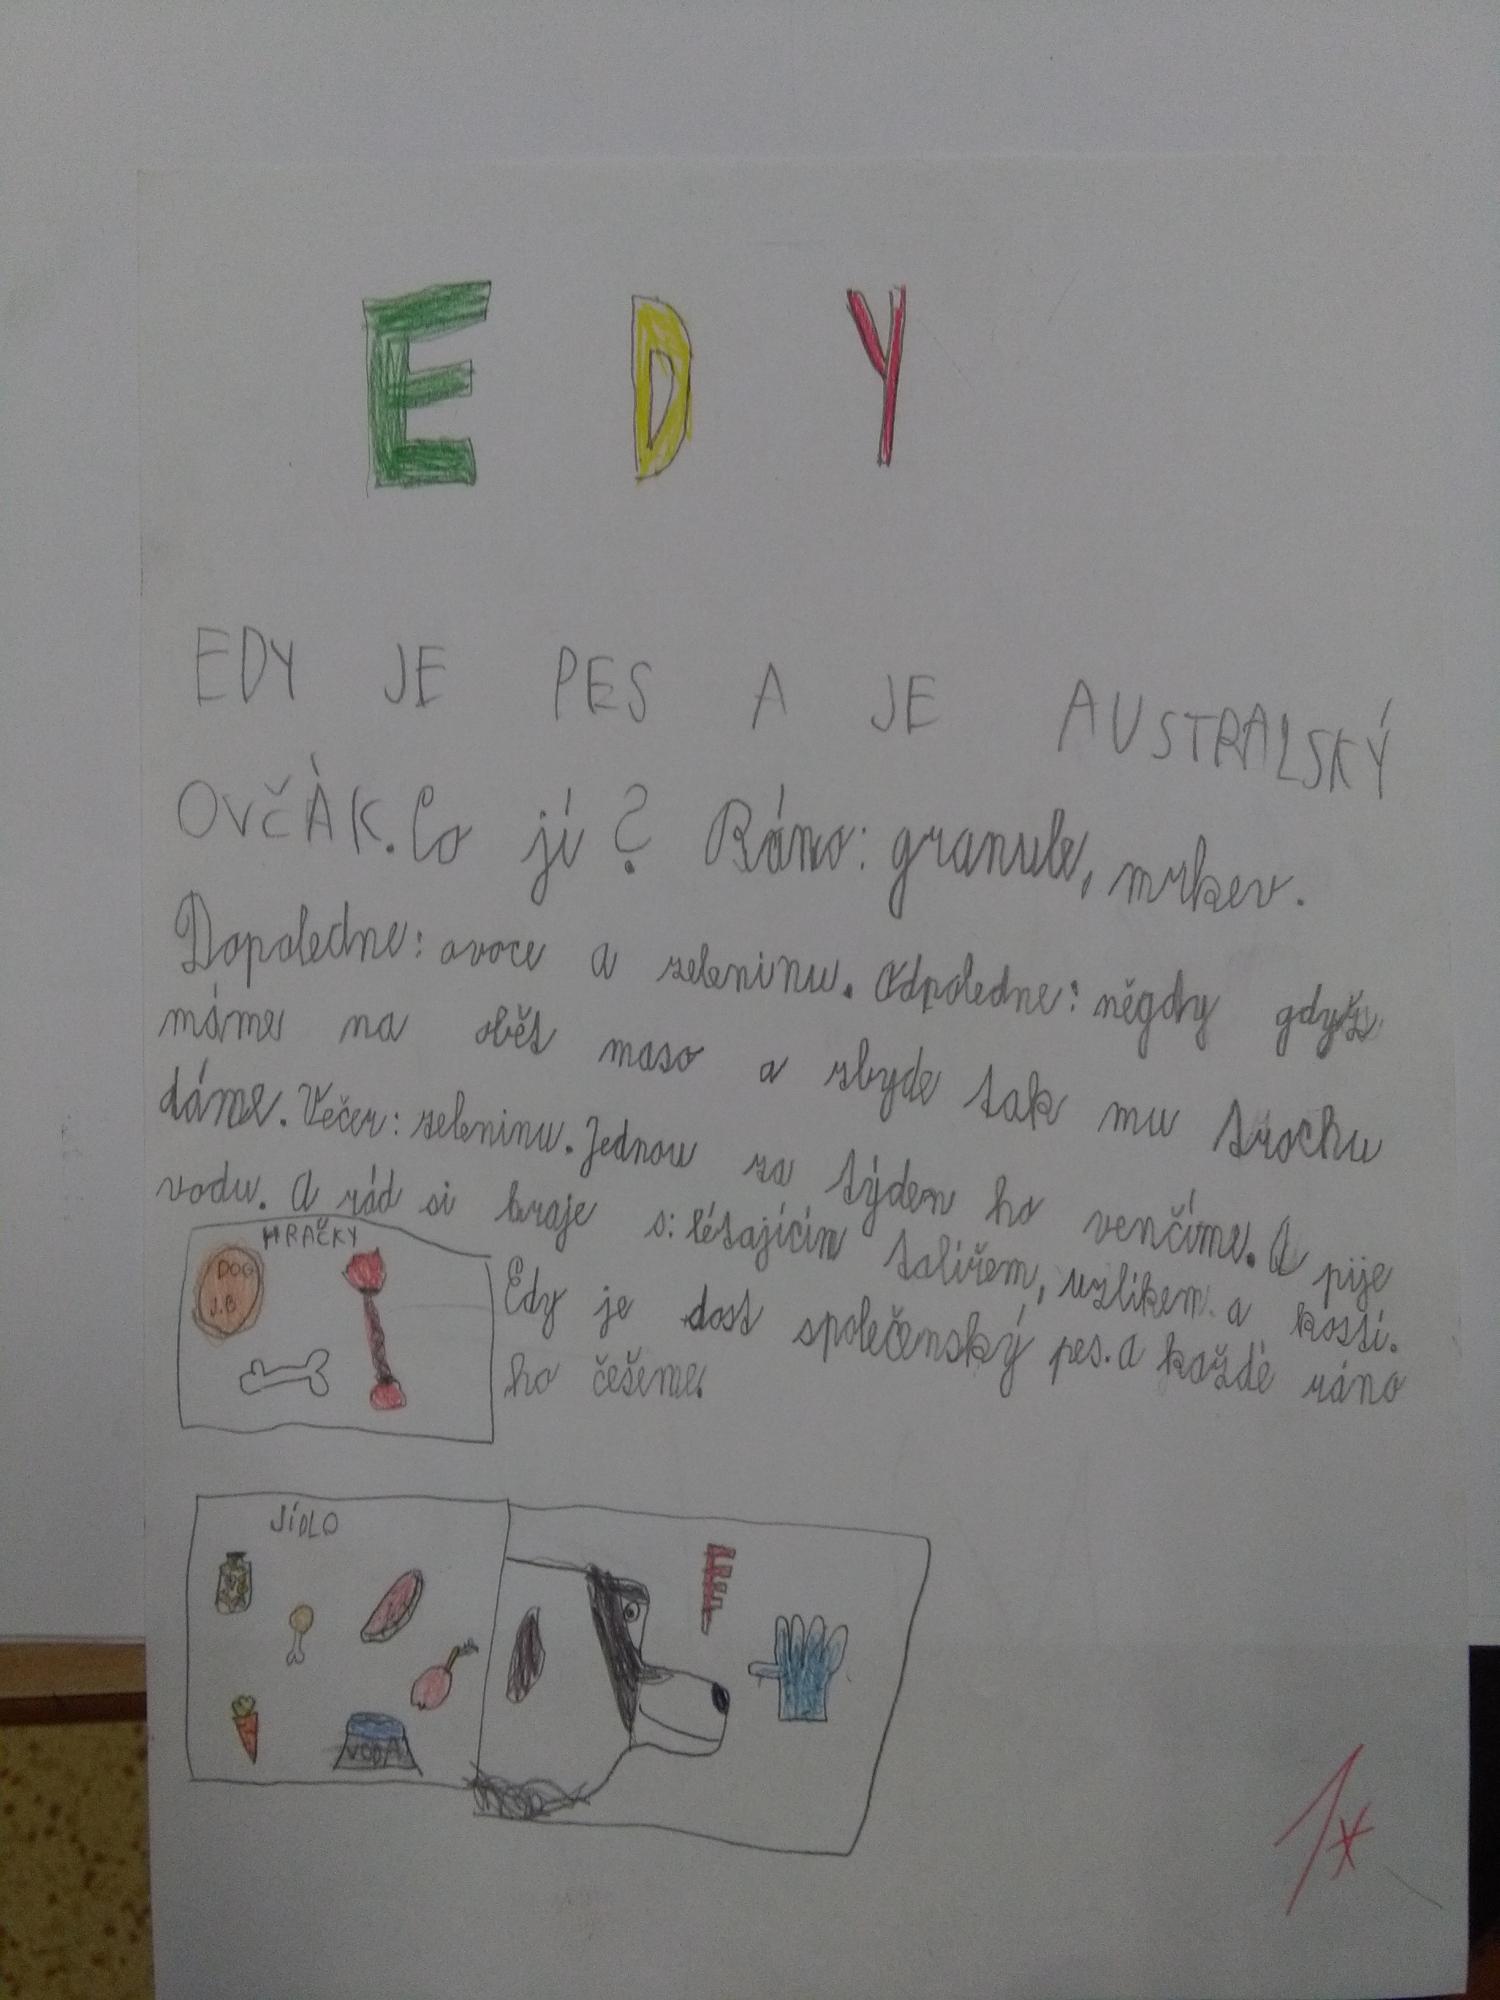 EDY
EDY JE PES A JE AUSTRALSKÝ
OVČÀK. Co jí? Ráno: granule, mrkev.
Dopoledne: ovoce a zeleninu. Odpoledne: něgdy gdyž
máme na obět maso a zbyde tak mu trochu
dáme. Večer: zeleninu. Jednou za týden ho venčíme. A pije
vodu. A rád si hraje s: létajícím talířem, uzlíkem a kostí.
Edy je dost společenský pes. A každé ráno
ho češeme.
HRAČKY
DOG
J.B
JÍDLO
VODA
1*